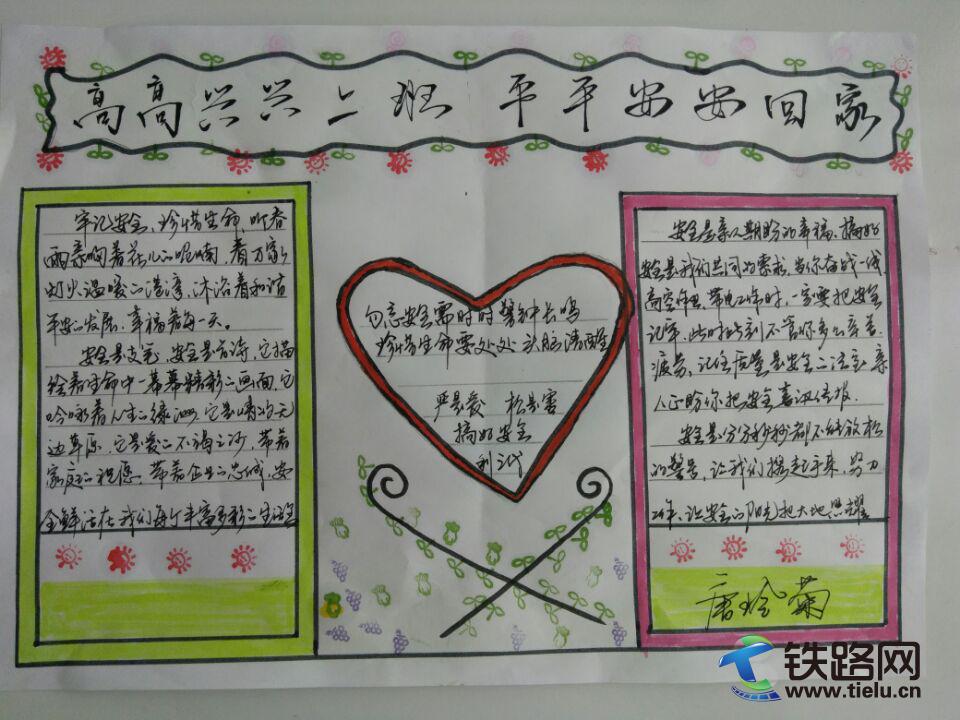 高高兴兴上班 平平安安回家
牢记安全,珍惜生命,听春
雨亲吻着花儿的呢喃,看万家
灯火温暖的浩淼,沐浴着和谐
平安的发展,幸福着每一天。
安全是支笔,安全是首诗,它描
绘着生命中一幕幕精彩的画面,它
吟咏着人生的绿洲,它是晴的天
边草原,它是爱的不海之沙,带着
家庭的祝愿,带着企业的忠诚,安
全鲜活在我们每个丰富多彩的生活
勿忘安全需时时警钟长鸣
珍惜生命要处处头脑清醒
严是爱 松是害
搞好安全
利三代
安全是亲人期盼的幸福,搞好
安全是我们共同的需求,当你奋战一线
高空作业、带电工作时,一定要把安全
记牢,此时此刻不管你多么辛苦、
疲劳,记住质量是安全的法宝,亲
人正盼你把安全喜讯传报。
安全是分分秒秒都不能放松
的警号,让我们携起手来,努力
工作,让安全的阳光把大地照耀
铁路网
www.tielu.cn